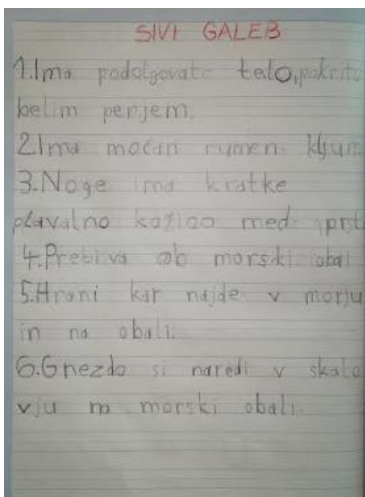 SIVI GALEB
1.Ima podolgovato telo, pokrito
belim perjem.
2.Ima močan rumen kljun
3.Noge ima kratke
plavalno kožico med prst
4.Prebiva ob morski obal
5.Hrani kar najde v morju
in na obali.
6.Gnezdo si naredi v skalo
vju na morski obali.